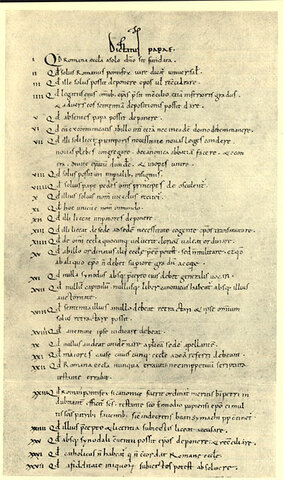 Dictatus papae.
I Qd Romana eccla a solo dno sit fundata.
II Qd solus Romanus pontifex iure dicat universal.
III Qd ille solus possit deponere epos vel reconciliare.
IIII Qd legatus eius omib epis psit in concilio etia inferioris gradus
& adversus eos sententia depositionis possit dare.
V Qd absentes papa possit deponere.
VI Qd cu excommunicatis ab illo inter cetera nec in eade domo debemus manere.
VII Qd illi soli licet p temporis necessitate novas leges condere
novas plebes congregare, de canonica abbatia facere, & econ
tra, divite episcopatu dividere & inopes unire.
VIII Qd solus possit uti imperialib insigniis.
VIIII Qd solius pape pedes oms principes deosculent.
X Qd illius solius nom in ecclis recitet.
XI Qd hoc unicu nom in mundo.
XII Qd illi liceat impatores deponere.
XIII Qd illi liceat de sede ad sede necessitate cogente epos transmutare.
XIIII Qd de omi eccla quocumq voluerit clericu valeat ordinare.
XV Qd ab illo ordinatus alii eccle pesse potest, sed n militare; & qd
ab aliquo epo n debet superiore gradu accipe.
XVI Qd nulla synodus absq pcepto eius debet generalis vocari.
XVII Qd nullu capitulu nullusq liber canonicus habeat absq illius
auctoritate.
XVIII Qd sententia illius a nullo debeat retractari & ipse omium
solus retractare possit.
XVIIII Qd a nemine ipse iudicari debeat.
XX Qd nullus audeat condemnare aplica sede apellante.
XXI Qd maiores cause cuiuscuq eccle ad ea referri debeant.
XXII Qd Romana eccla nunqua erravit nec imppetuu scriptura
testante errabit.
XXIII Qd Romanus pontifex si canonice fuerit ordinatus meritis b petri in
dubitant effici scs testante sco Ennodio papiensi epo ei mul
tis scis patrib faventib sic in decretis beati symachi pp continet.
XXIIII Qd illius pcepto & licentia subiectis liceat accusare.
XXV Qd absq synodali conventu possit epos deponere & reconciliare.
XXVI Qd catholicus n habeat q n concordat Romane eccle.
XXVII Qd a fidelitate iniquor subiectos potest absolvere.